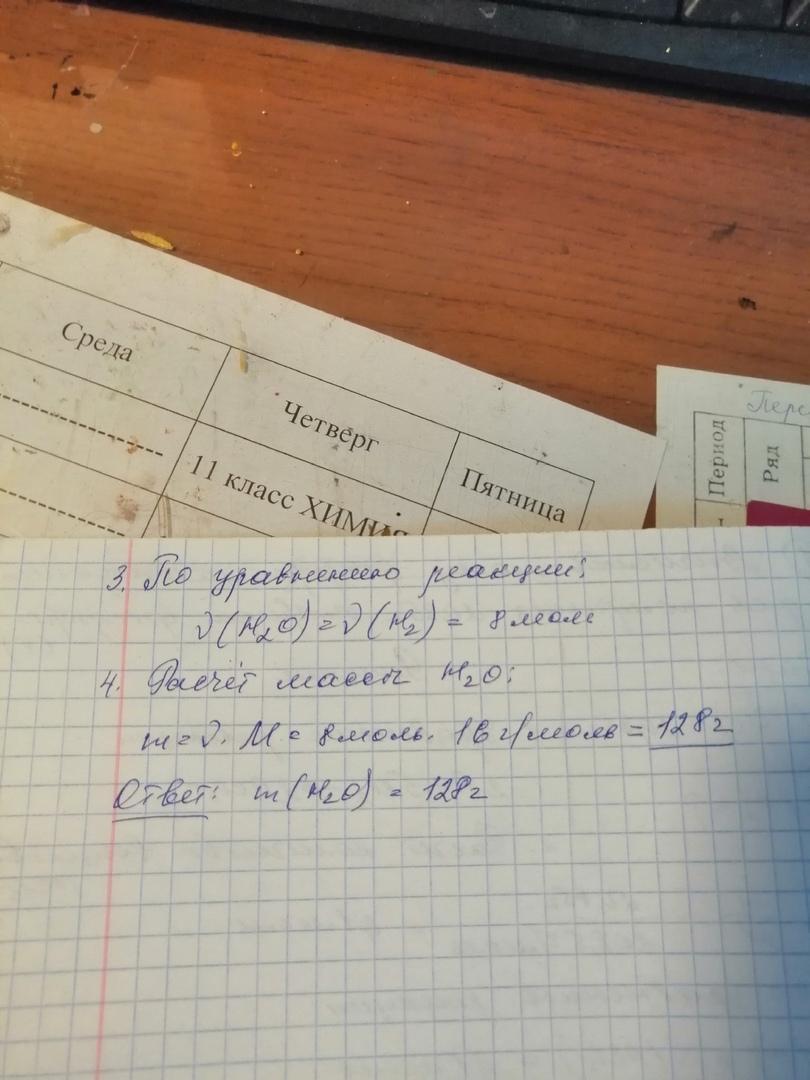 Среда
Четверг
Пятница
11 класс ХИМИЯ
Период
Ряд
3. По уравнению реакции:
ν(H₂O) = ν(H₂) = 8 моль
4. Расчёт массы H₂O:
m = ν · M = 8 моль · 16 г/моль = 128 г
Ответ: m(H₂O) = 128 г